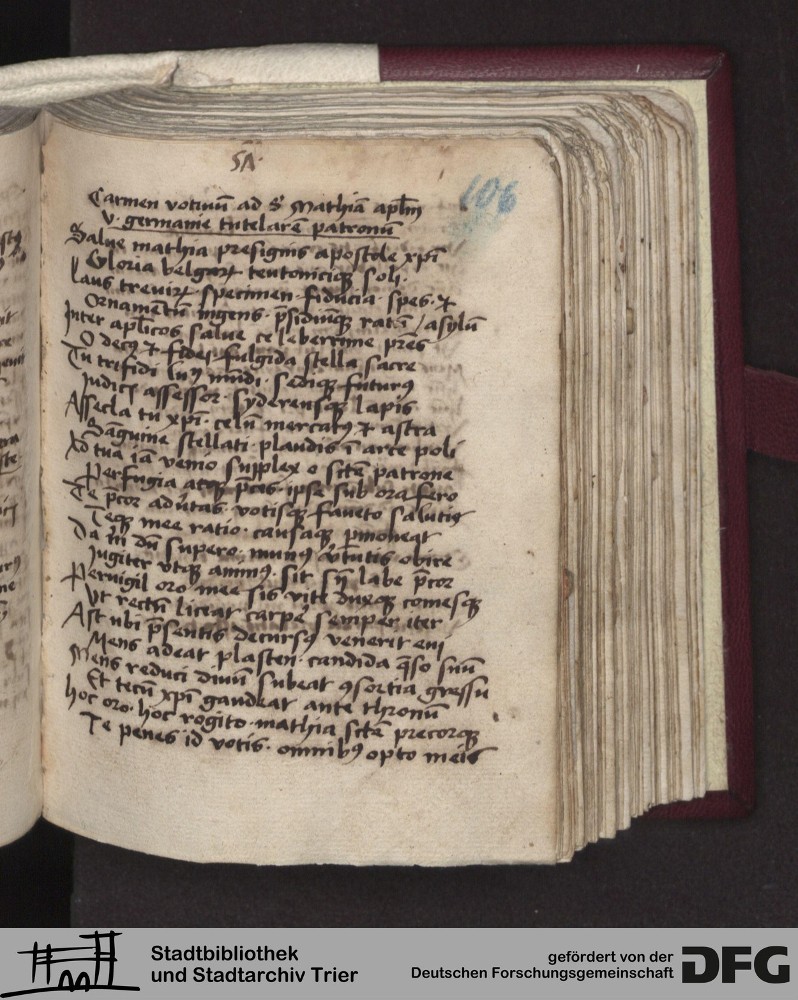 SA·
106
Carmen votiuū ad S Mathiā apl̄m
v· germanie tutelarē patronū
Salue mathia presignis apostole xp̄i
Gloria belgarꝝ teutonicięꝫ soli·
Laus treuirꝝ· specimen· fiducia· spes· ⁊
Ornamētū ingens· p̄sidiūqꝫ ratū /asylū
Inter apl̄icos salue celeberrime pr̄es
O decꝰ ⁊ fidei· fulgida stella sacre
Tu trifidi mūdi· futurꝰ
Iudicij assessor· syderensqꝫ lapis
Assecla tu xp̄i· celū mercatꝰ ⁊ astra
Sāguine stellati· plaudis ī arce poli
Ad tua iā venio supplex o sctē patrone
Perfugia atqꝫ p̄ces· ipse sub ora fero
Te p̄cor adūtas· votisqꝫ faueto salutis
Teqꝫ mee ratio· causaqꝫ pmoueat
Da m̄ dū supero· munꝰ v̄tutis obire
Iugiter vtqꝫ animꝰ sit sn̄ labe p̄cor
Peruigil oro mee sis vite duxqꝫ comesqꝫ
Vt rectū liceat carpe᷑ semper iter
Ast ubi p̄sentis decursꝰ venerit eui
Mens adeat plasten· candida q̄so suū
Mens reduci diuū subeat ꝯsortia gressu
Et tecū xp̄i gaudeat ante thronū
Hoc oro· hoc rogito· mathia sctē precorqꝫ
Te penes id votis· omnibꝰ opto meis
Stadtbibliothek
und Stadtarchiv Trier
gefördert von der
Deutschen Forschungsgemeinschaft
DFG